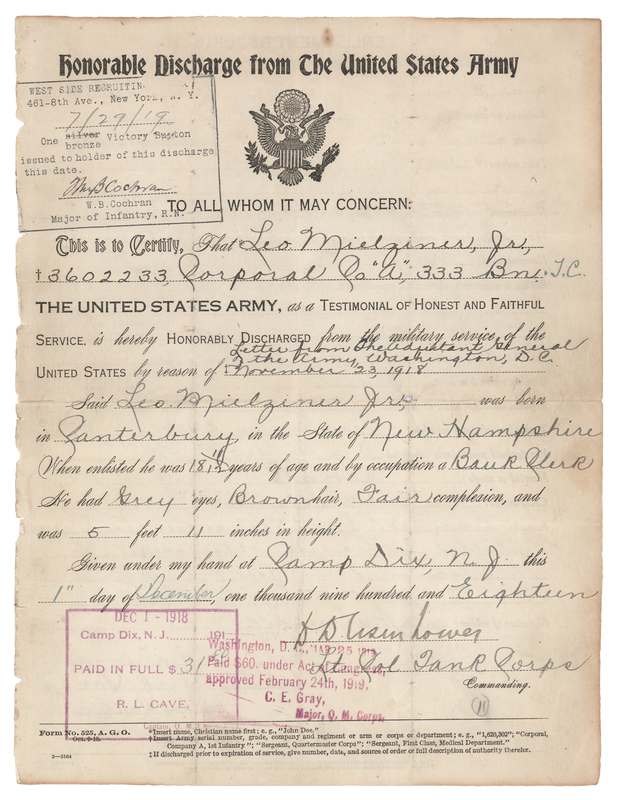 Honorable Discharge from The United States Army
WEST SIDE RECRUITIN
461-8th Ave., New York, N. Y.
7/29/19
One silver Victory Button
bronze
issued to holder of this discharge
this date.
Wm B Cochran
W.B.Cochran
Major of Infantry, R.N.
TO ALL WHOM IT MAY CONCERN:
This is to Certify, That Leo Mielziner, Jr,
†3602233, Corporal Co "A", 333 Bn. T.C.
THE UNITED STATES ARMY, as a TESTIMONIAL OF HONEST AND FAITHFUL
SERVICE, is hereby HONORABLY DISCHARGED from the military service of the
Letter from The Adjutant General
of the Army, Washington, D.C.
UNITED STATES by reason of ‡ November 23, 1918
Said Leo Mielziner Jr, was born
in Canterbury, in the State of New Hampshire
When enlisted he was 18 years of age and by occupation a Bank Clerk
He had Grey eyes, Brown hair, Fair complexion, and
was 5 feet 11 inches in height.
Given under my hand at Camp Dix, N.J. this
1" day of December, one thousand nine hundred and Eighteen
D D Eisenhower
Lt Col Tank Corps
Commanding.
DEC 1 - 1918
Camp Dix, N. J. 191
PAID IN FULL $ 31
R. L. CAVE,
Captain, Q. M.
Washington, D. C., MAR 25 1919
Paid $60. under Act of Congress,
approved February 24th, 1919,
C. E. Gray,
Major, Q. M. Corps.
11
Form No. 525, A. G. O.
Oct. 9-18.
3—3164
*Insert name, Christian name first; e. g., "John Doe."
†Insert Army serial number, grade, company and regiment or arm or corps or department; e. g., "1,620,302"; "Corporal,
Company A, 1st Infantry"; "Sergeant, Quartermaster Corps"; "Sergeant, First Class, Medical Department."
‡If discharged prior to expiration of service, give number, date, and source of order or full description of authority therefor.